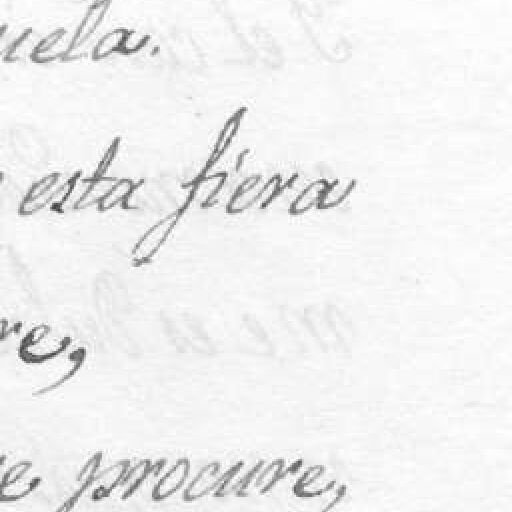 uela.
esta fiera
re,
e procure,